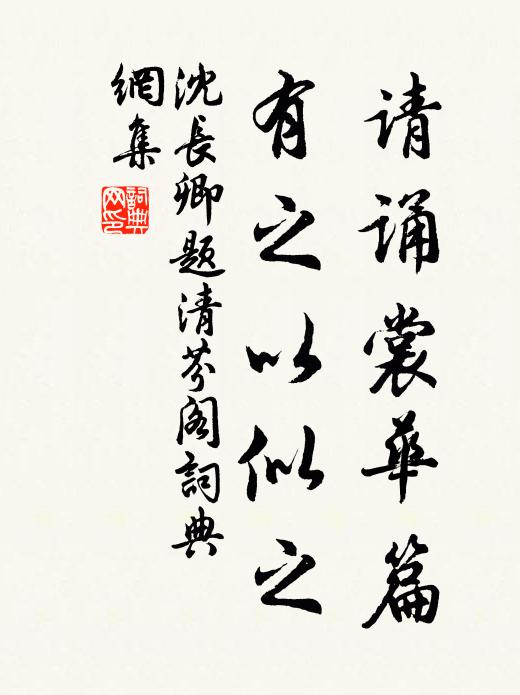 请诵裳华篇
有之以似之
沈長卿题清芬阁詞典
網集
詞典
网印